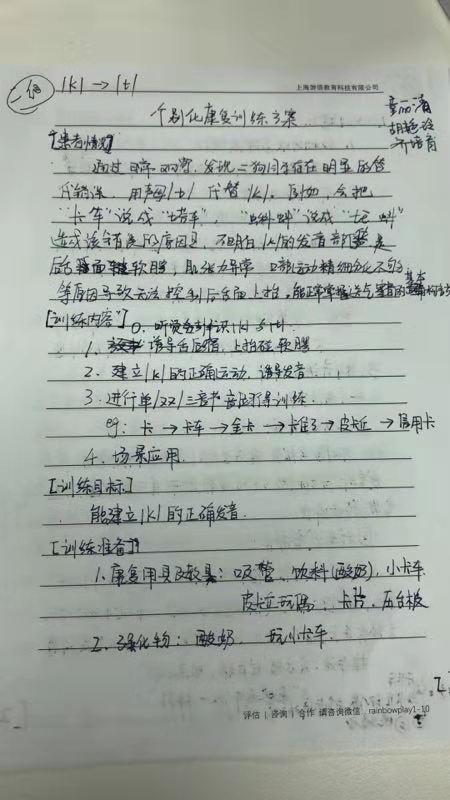 上海游语教育科技有限公司
二狗 |k| → |t|
个别化康复训练方案
[患者情况]
通过日常观察，发现二狗同学存在明显的替
代错误，用声母|t|代替|k|。例如，会把
"卡车"说成"塔车"，"蝌蚪"说成"
造成该错误的原因是，不明白|k|的发音部位是
后舌面 软腭，肌张力异常，口部运动精细分化不够
等原因导致无法控制后舌面上抬。能正常掌握送气
[训练内容]
0、听觉分别识|k|与|t|
1、诱导舌后缩，上抬碰软腭
2、建立|k|的正确运动，诱导发音
3、进行单/双/三音节音位习得训练.
eg: 卡 → 卡车 → 金卡 → → 皮卡丘 → 信用卡
4、场景应用
[训练目标]
能建立|k|的正确发音.
[训练准备]
1、康复用具及教具：吸管、饮料(酸奶)，小卡车
皮卡丘玩偶、卡片、压舌板
2、强化物：酸奶、玩小卡车
评估 | 咨询 | 合作 请咨询微信：rainbowplay1-10